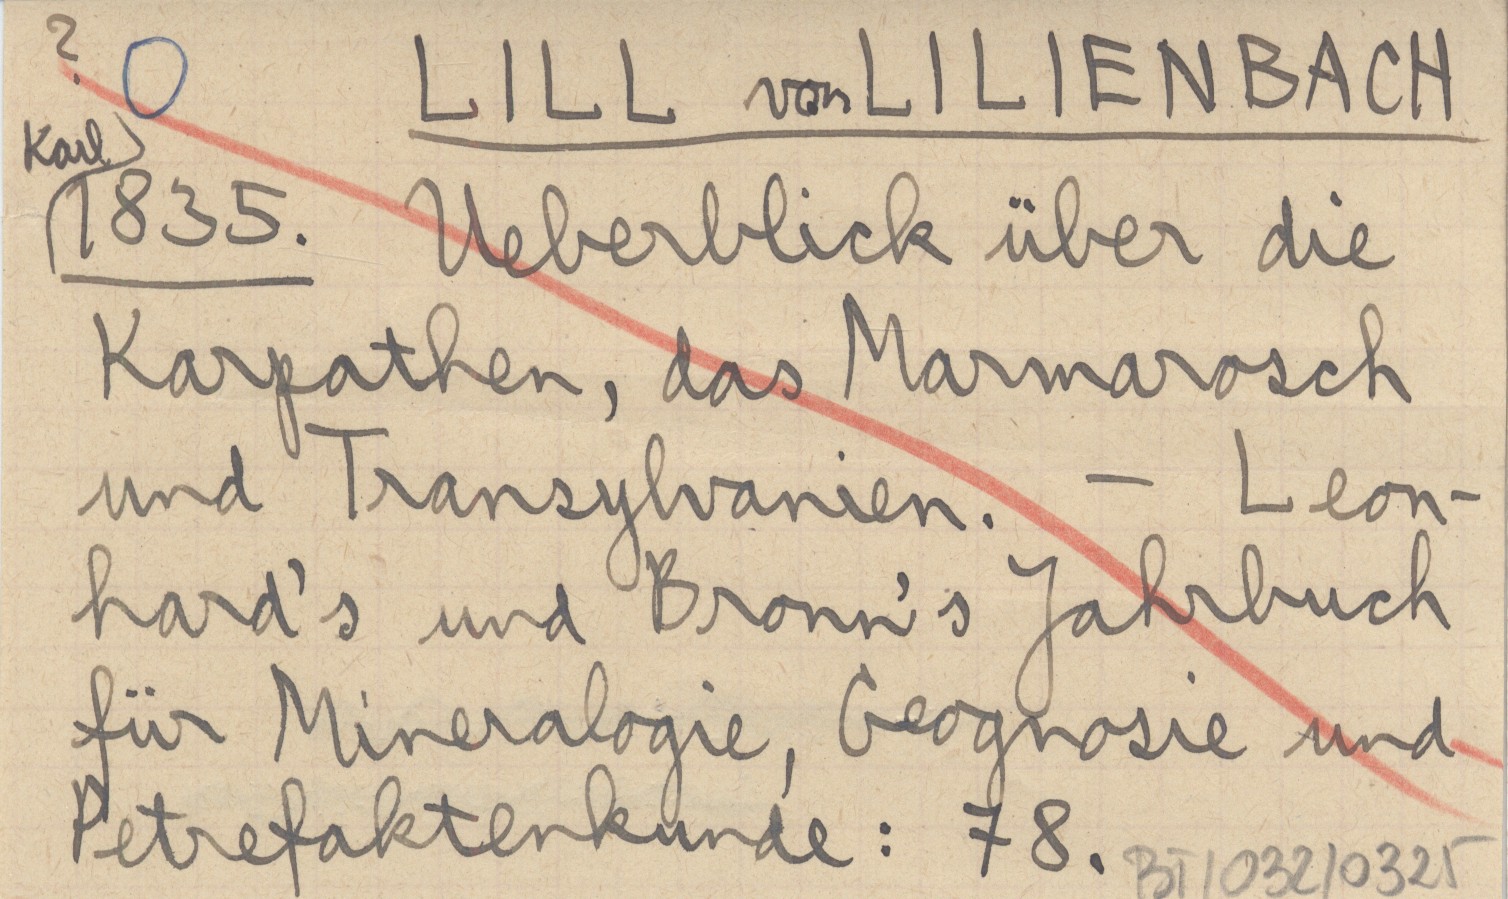 ?
LILL von LILIENBACH
Karl
1835. Ueberblick über die
Karpathen, das Marmarosch
und Transylvanien. – Leon-
hard's und Bronn's Jahrbuch
für Mineralogie, Geognosie und
Petrefaktenkunde: 78.
BT/032/0325